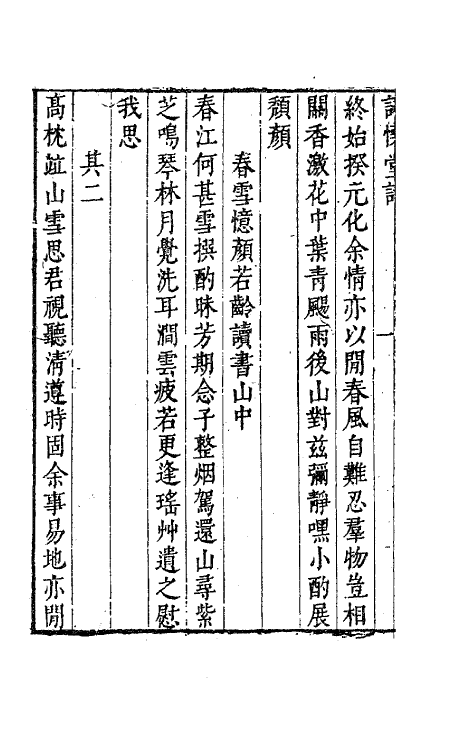 終始揆元化余情亦以閒春風自難忍羣物豈相
關香激花中葉青颸雨後山對兹彌靜嘿小酌展
頹顏
春雪憶顏若齡讀書山中
春江何甚雪撰酌昧芳期念子整烟駕還山尋紫
芝鳴琴林月覺洗耳澗雲疲若更逢瑤艸遺之慰
我思
其二
高枕竝山雪思君視聽清遵時固余事易地亦閒